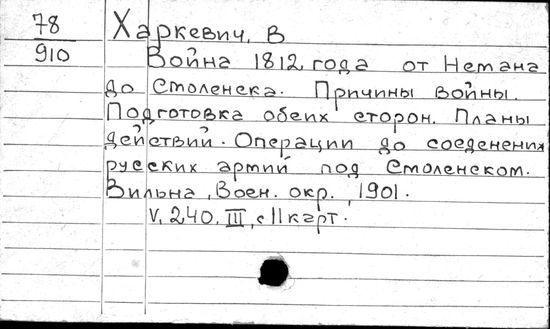 78
910
Харкевич, В
Война 1812 года от Немана
до Смоленска. Причины войны.
Подготовка обеих сторон. Планы
действий. Операции до соеденения
русских армий под Смоленском.
Вильна, Воен. окр., 1901.
V, 240, III, с 11 карт.